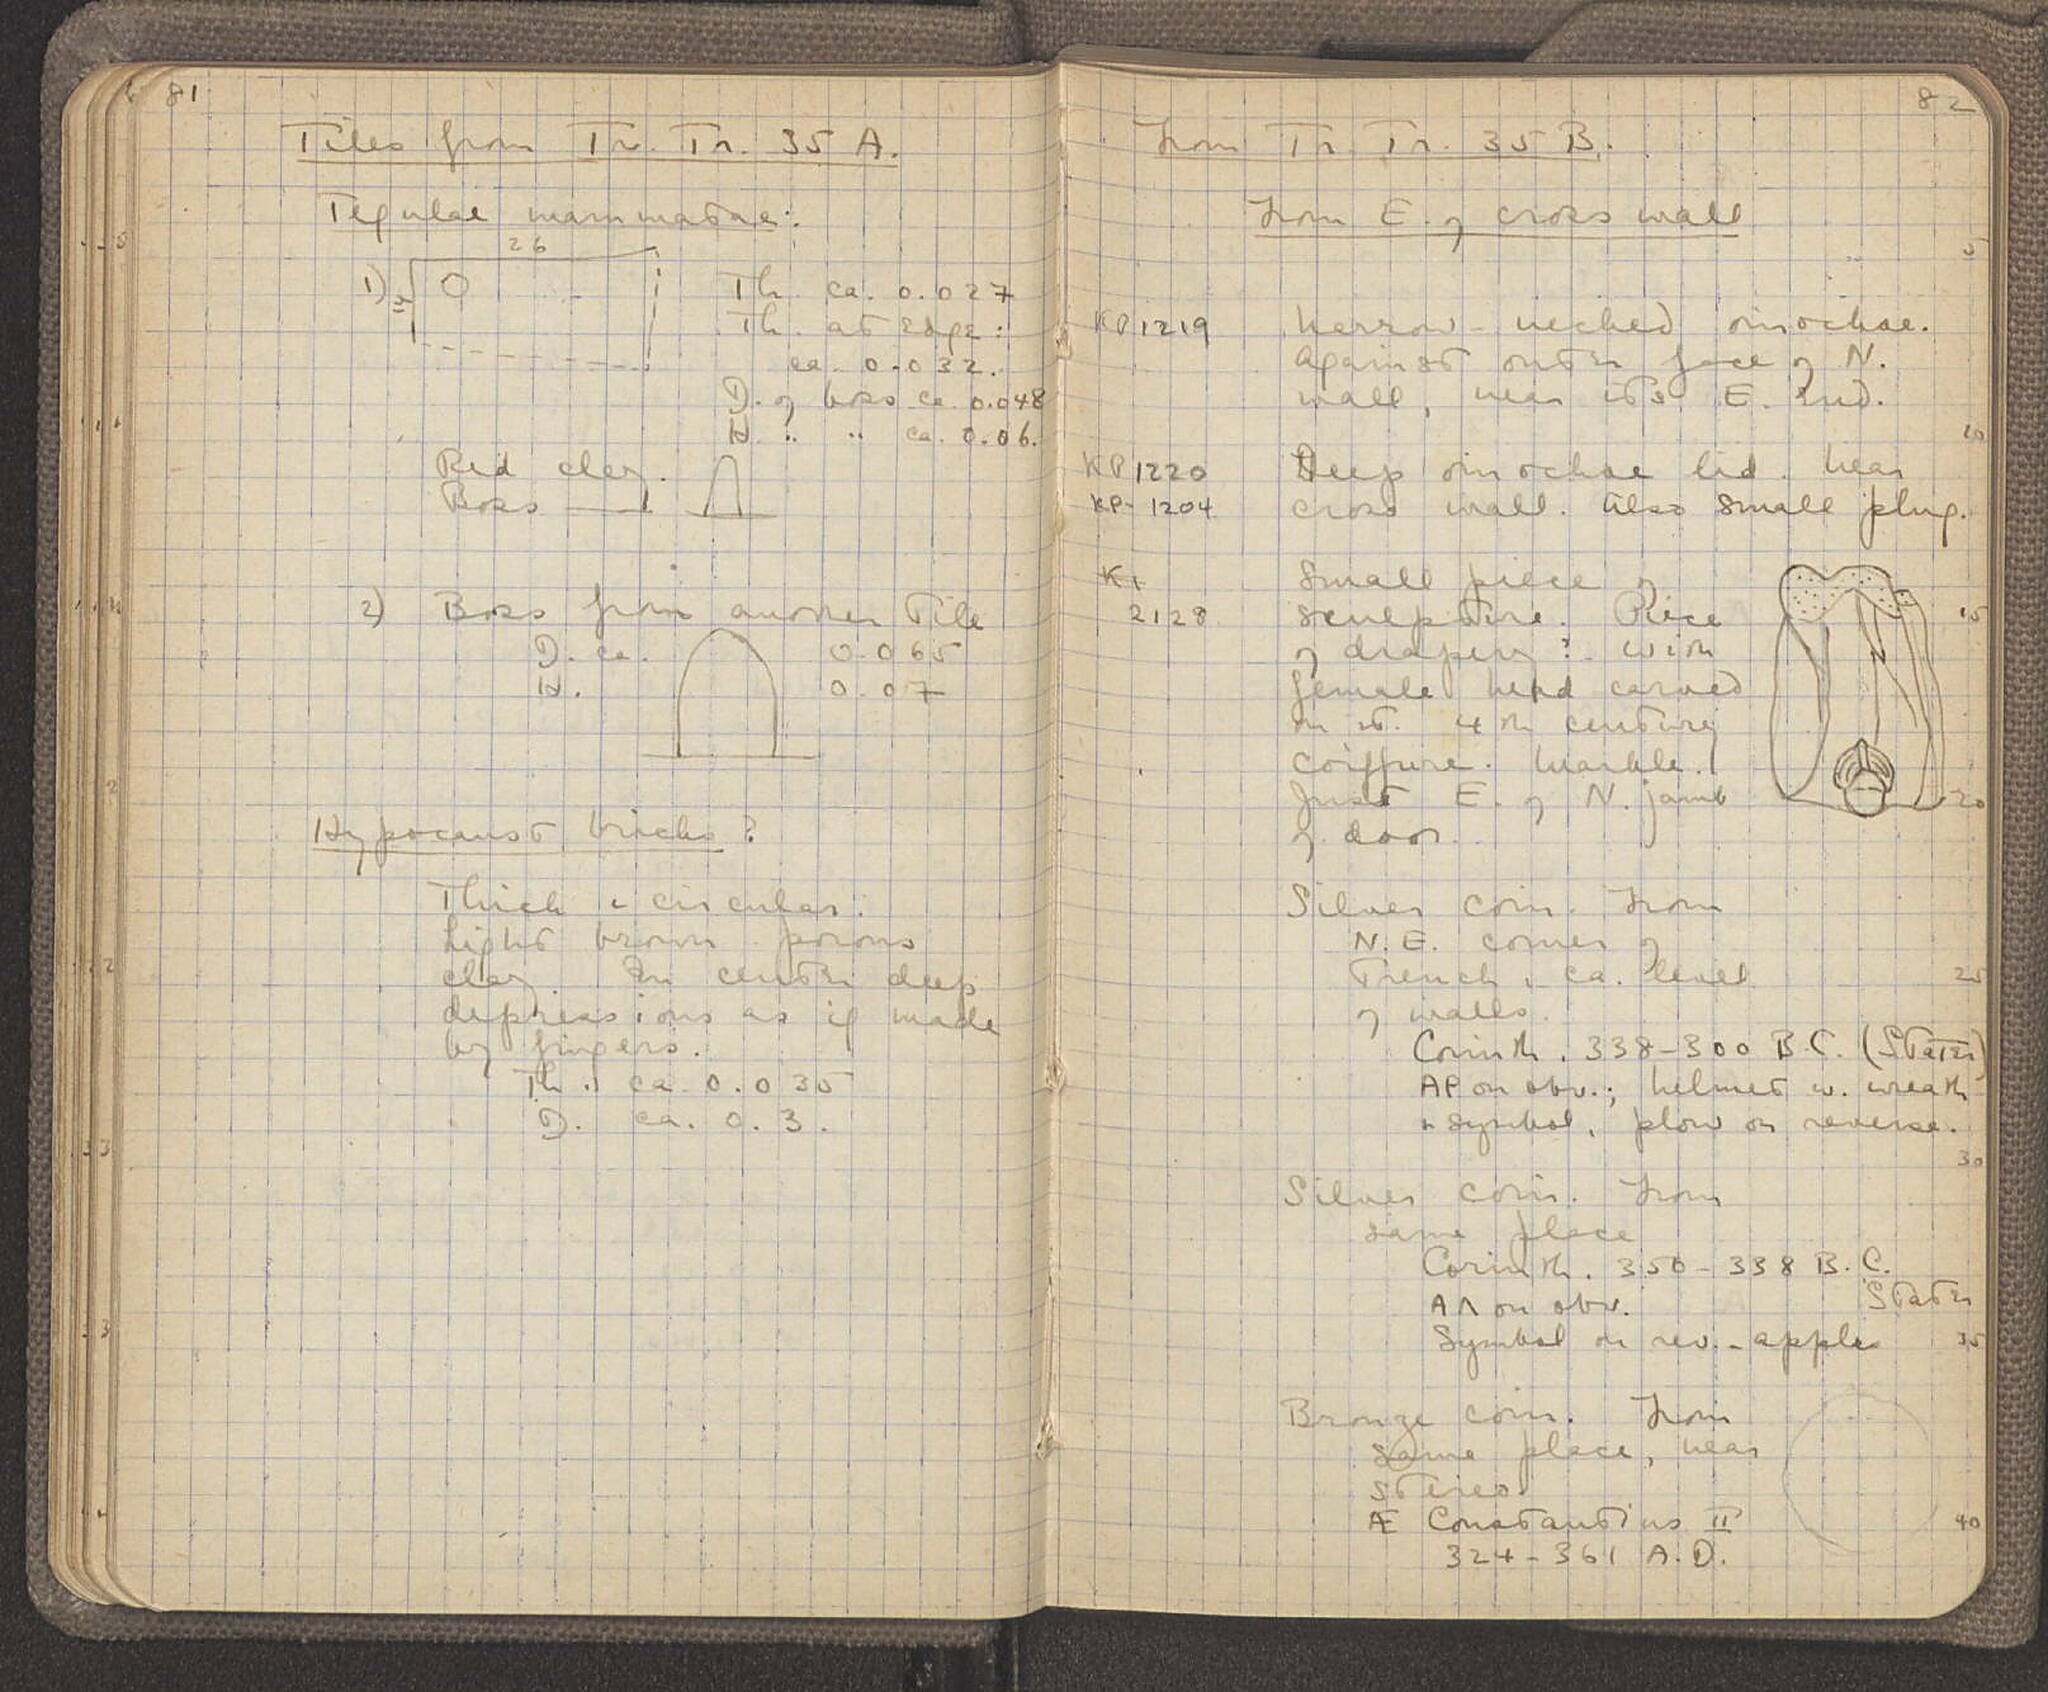 81
Tiles from Tr. Tr. 35 A.
Tegulae mammatae:
26
1)
Th. ca. 0.027
Th. at edge:
ca. 0.032.
D. of boss ca. 0.048
H. " " ca. 0.06.
Red clay.
Boss
2) Boss from another tile
D. ca. 0.065
H. 0.07
Hypocaust bricks?
Thick & circular.
Light brown porous
clay. In center deep
depressions as if made
by fingers.
Th. ca. 0.035
D. ca. 0.3.
82
From Tr. Tr. 35 B.
From E. of cross wall
5
KP 1219 Narrow-necked oinochoe.
Against outer face of N.
wall, near its E. end.
10
KP 1220 Deep oinochoe lid. Near
KP-1204 cross wall. Also small plug.
Small piece of
2128 sculpture. Piece 15
of drapery? with
female head carved
on it. 4th century
coiffure. Marble.
Just E. of N. jamb 20
of door.
Silver coin. From
N.E. corner of
trench, ca. level 25
of walls.
Corinth. 338-300 B.C. (Stater)
AP on obv.; helmet w. wreath
& symbol, plow on reverse.
30
Silver coin. From
same place
Corinth. 350-338 B.C.
AΛ on obv. Stater
Symbol on rev. - apples 35
Bronze coin. From
same place, near
stereo
Æ Constantius II 40
324-361 A.D.